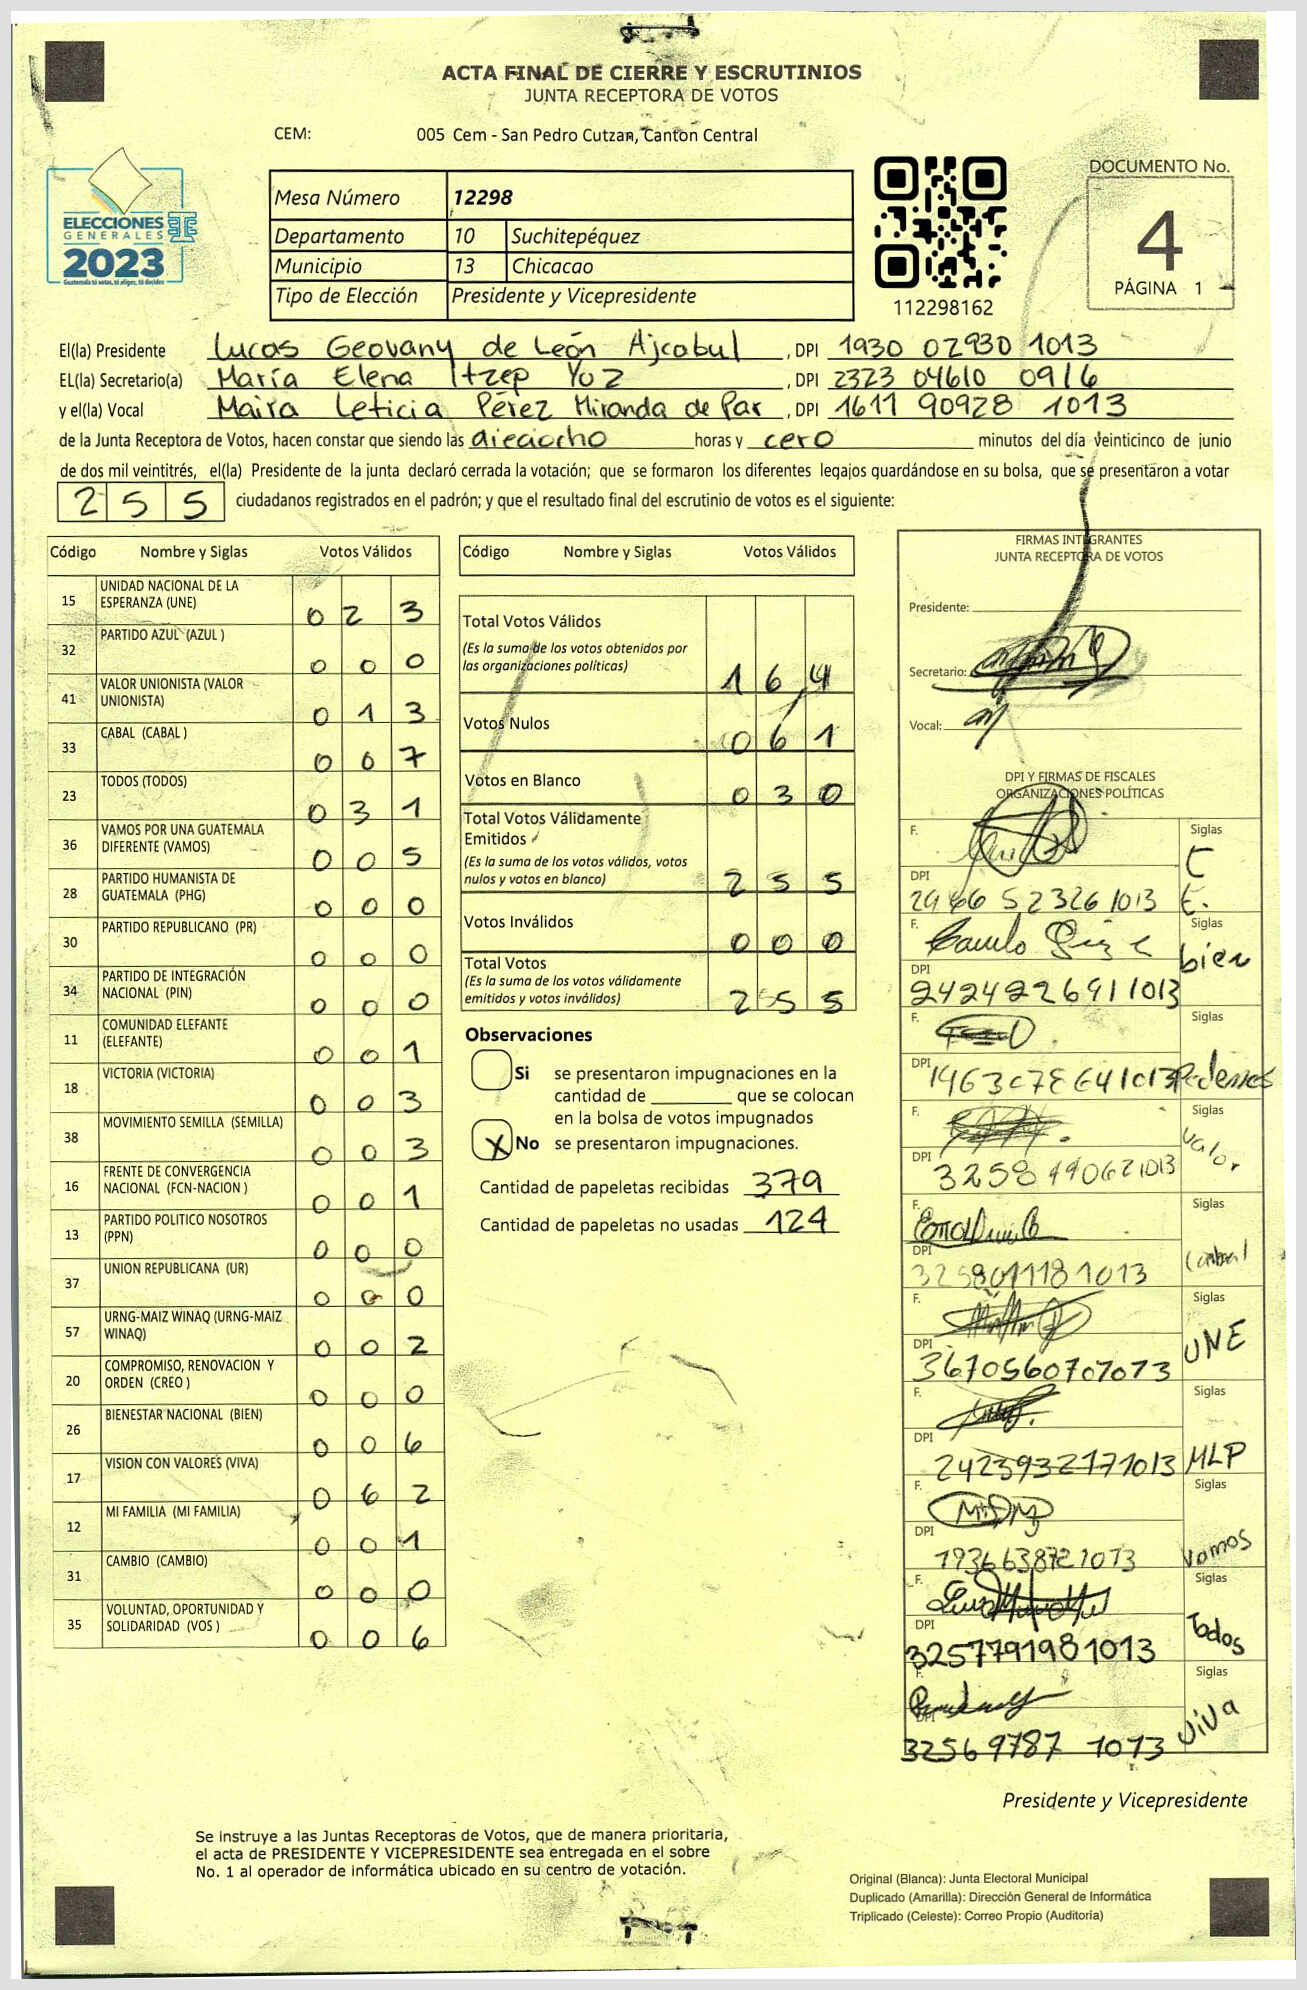 ACTA FINAL DE CIERRE Y ESCRUTINIOS
JUNTA RECEPTORA DE VOTOS
CEM: 005 Cem - San Pedro Cutzan, Canton Central
ELECCIONES
GENERALES
2023
Guatemala tú votas, tú eliges, tú decides
Mesa Número 12298
Departamento 10 Suchitepéquez
Municipio 13 Chicacao
Tipo de Elección Presidente y Vicepresidente
112298162
DOCUMENTO No.
4
PÁGINA 1
El(la) Presidente Lucas Geovany de León Ajcabul , DPI 1930 02930 1013
EL(la) Secretario(a) María Elena Itzep Yoz , DPI 2323 04610 0916
y el(la) Vocal Maira Leticia Pérez Miranda de Par , DPI 1611 90928 1013
de la Junta Receptora de Votos, hacen constar que siendo las dieciocho horas y cero minutos del día veinticinco de junio
de dos mil veintitrés, el(la) Presidente de la junta declaró cerrada la votación; que se formaron los diferentes legajos guardándose en su bolsa, que se presentaron a votar
255 ciudadanos registrados en el padrón; y que el resultado final del escrutinio de votos es el siguiente:
Código Nombre y Siglas Votos Válidos
15 UNIDAD NACIONAL DE LA ESPERANZA (UNE) 0 2 3
32 PARTIDO AZUL (AZUL ) 0 0 0
41 VALOR UNIONISTA (VALOR UNIONISTA) 0 1 3
33 CABAL (CABAL ) 0 0 7
23 TODOS (TODOS) 0 3 1
36 VAMOS POR UNA GUATEMALA DIFERENTE (VAMOS) 0 0 5
28 PARTIDO HUMANISTA DE GUATEMALA (PHG) 0 0 0
30 PARTIDO REPUBLICANO (PR) 0 0 0
34 PARTIDO DE INTEGRACIÓN NACIONAL (PIN) 0 0 0
11 COMUNIDAD ELEFANTE (ELEFANTE) 0 0 1
18 VICTORIA (VICTORIA) 0 0 3
38 MOVIMIENTO SEMILLA (SEMILLA) 0 0 3
16 FRENTE DE CONVERGENCIA NACIONAL (FCN-NACION ) 0 0 1
13 PARTIDO POLITICO NOSOTROS (PPN) 0 0 0
37 UNION REPUBLICANA (UR) 0 0 0
57 URNG-MAIZ WINAQ (URNG-MAIZ WINAQ) 0 0 2
20 COMPROMISO, RENOVACION Y ORDEN (CREO ) 0 0 0
26 BIENESTAR NACIONAL (BIEN) 0 0 6
17 VISION CON VALORES (VIVA) 0 6 2
12 MI FAMILIA (MI FAMILIA) 0 0 1
31 CAMBIO (CAMBIO) 0 0 0
35 VOLUNTAD, OPORTUNIDAD Y SOLIDARIDAD (VOS ) 0 0 6
Código Nombre y Siglas Votos Válidos
Total Votos Válidos 1 6 4
(Es la suma de los votos obtenidos por
las organizaciones políticas)
Votos Nulos 0 6 1
Votos en Blanco 0 3 0
Total Votos Válidamente
Emitidos 2 5 5
(Es la suma de los votos válidos, votos
nulos y votos en blanco)
Votos Inválidos 0 0 0
Total Votos 2 5 5
(Es la suma de los votos válidamente
emitidos y votos inválidos)
Observaciones
Si se presentaron impugnaciones en la
cantidad de ________ que se colocan
en la bolsa de votos impugnados
X No se presentaron impugnaciones.
Cantidad de papeletas recibidas 379
Cantidad de papeletas no usadas 124
FIRMAS INTEGRANTES
JUNTA RECEPTORA DE VOTOS
Presidente:
Secretario:
Vocal:
DPI Y FIRMAS DE FISCALES
ORGANIZACIONES POLÍTICAS
F. Siglas
DPI
F. Siglas bien
DPI 2424226911013
F. Siglas
DPI
F. Siglas Valor
DPI
F. Siglas
DPI 3258011181013
F. Siglas UNE
DPI 3670560707073
F. Siglas MLP
DPI 2423932171013
F. Siglas Vamos
DPI 1936638721013
F. Siglas Todos
DPI 3257791981013
F. Siglas viva
DPI 32569787 1013
Presidente y Vicepresidente
Se instruye a las Juntas Receptoras de Votos, que de manera prioritaria,
el acta de PRESIDENTE Y VICEPRESIDENTE sea entregada en el sobre
No. 1 al operador de informática ubicado en su centro de votación.
Original (Blanca): Junta Electoral Municipal
Duplicado (Amarilla): Dirección General de Informática
Triplicado (Celeste): Correo Propio (Auditoría)